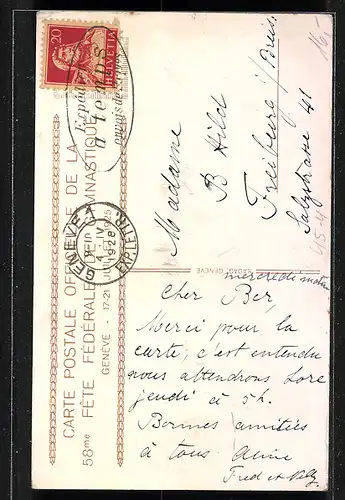 20
HELVETIA
à temps
GENÈVE 1
4.IV
1928
EXP. LETTR.
CARTE POSTALE OFFICIELLE DE LA
58me FÊTE FÉDÉRALE DE GYMNASTIQUE
GENÈVE - 17-21 JUILLET 1925
16,-
Madame
B Hild
Freiburg i/Breis.
Salzstrasse 41
SADAG, GENÈVE
mercredi matin
Cher Ber,
Merci pour la
carte, c'est entendu
nous attendrons Lore
jeudi à 5h.
Bonnes amitiés
à tous
Fred et Nelly